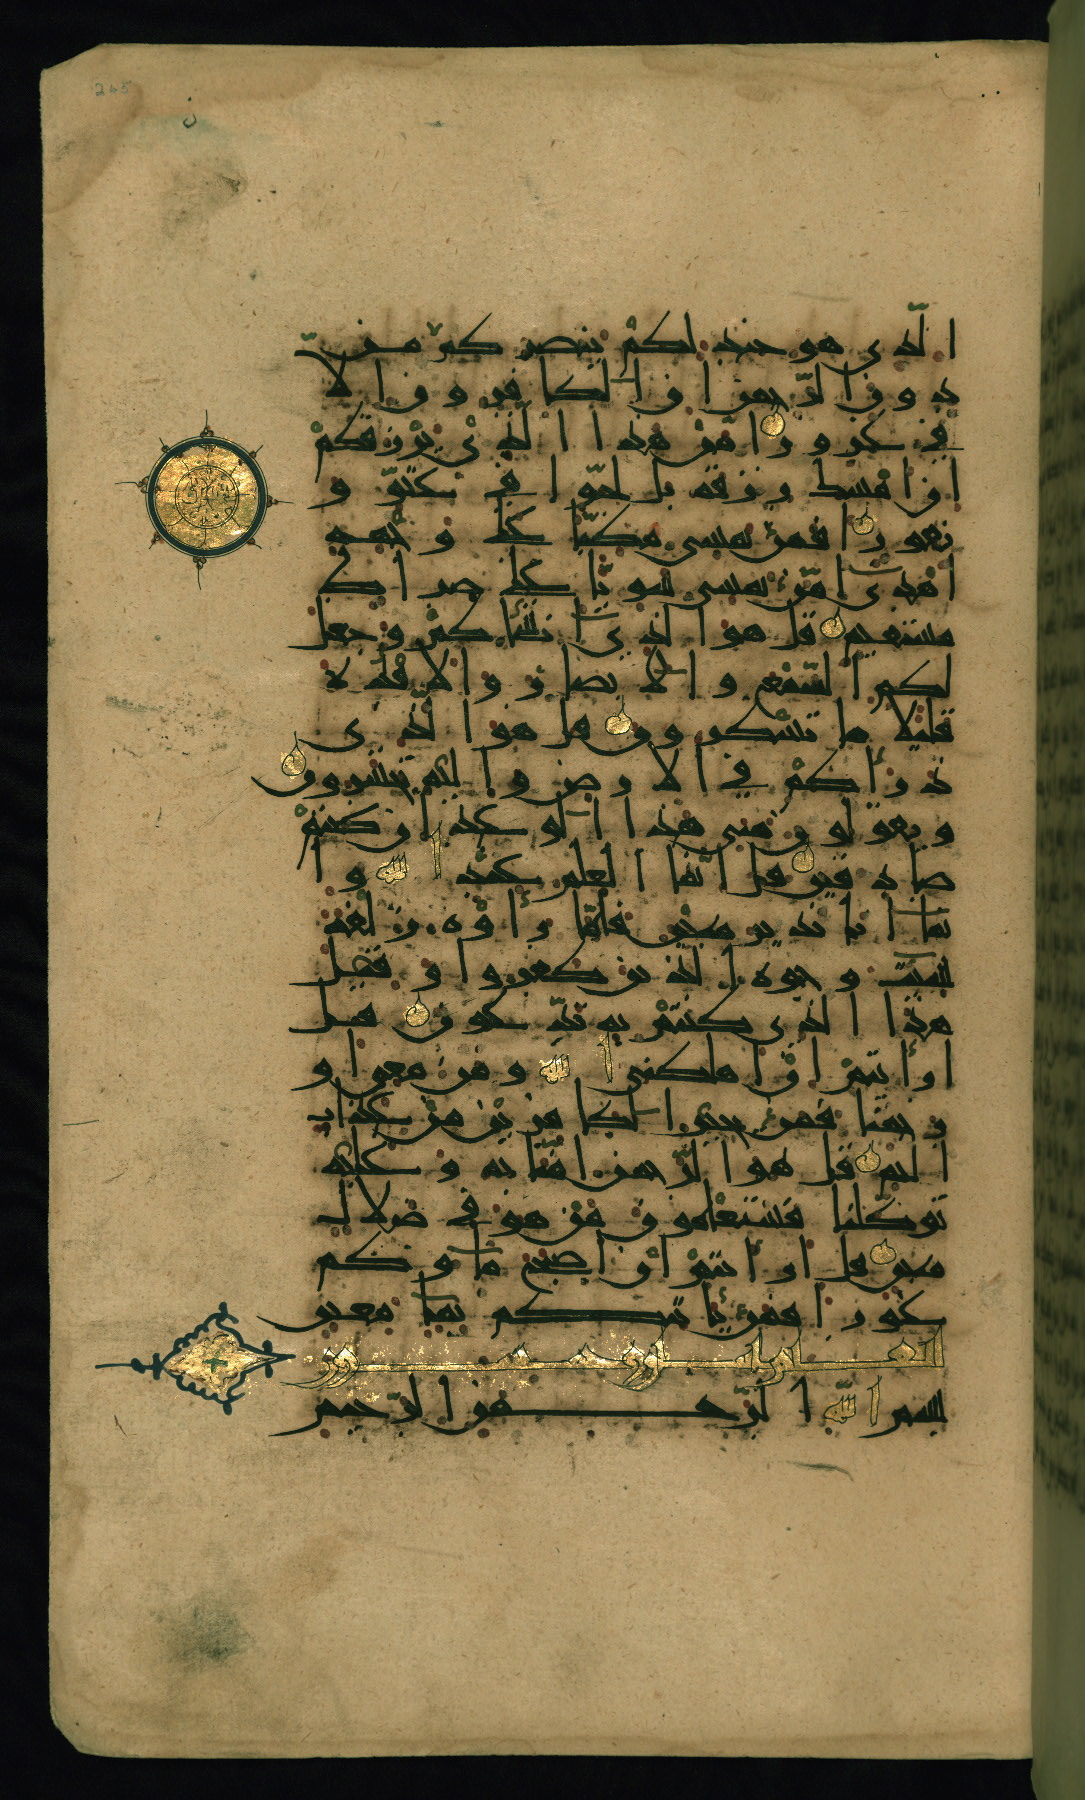 245
الَّذى هو جند لكم ينصركم من
دون الرحمن ان الكفرون الا
فى غرور امن هذا الذى يرزقكم
ان امسك رزقه بل لجوا فى عتو و
نفور افمن يمشى مكبا على وجهه
اهدى امن يمشى سويا على صراط
مستقيم قل هو الذى انشاكم وجعل
لكم السمع والابصار والافئدة
قليلا ما تشكرون قل هو الذى
ذرأكم فى الارض واليه تحشرون
ويقولون متى هذا الوعد ان كنتم
صادقين قل انما العلم عند الله وا
نما انا نذير مبين فلما رأوه زلفة
سيئت وجوه الذين كفروا وقيل
هذا الذى كنتم به تدعون قل
ارأيتم ان اهلكنى الله ومن معى او
رحمنا فمن يجير الكافرين من عذاب
اليم قل هو الرحمن امنا به وعليه
توكلنا فستعلمون من هو فى ضلال
مبين قل ارأيتم ان اصبح ماؤكم
غورا فمن يأتيكم بماء معين
بسم الله الرحمن الرحيم